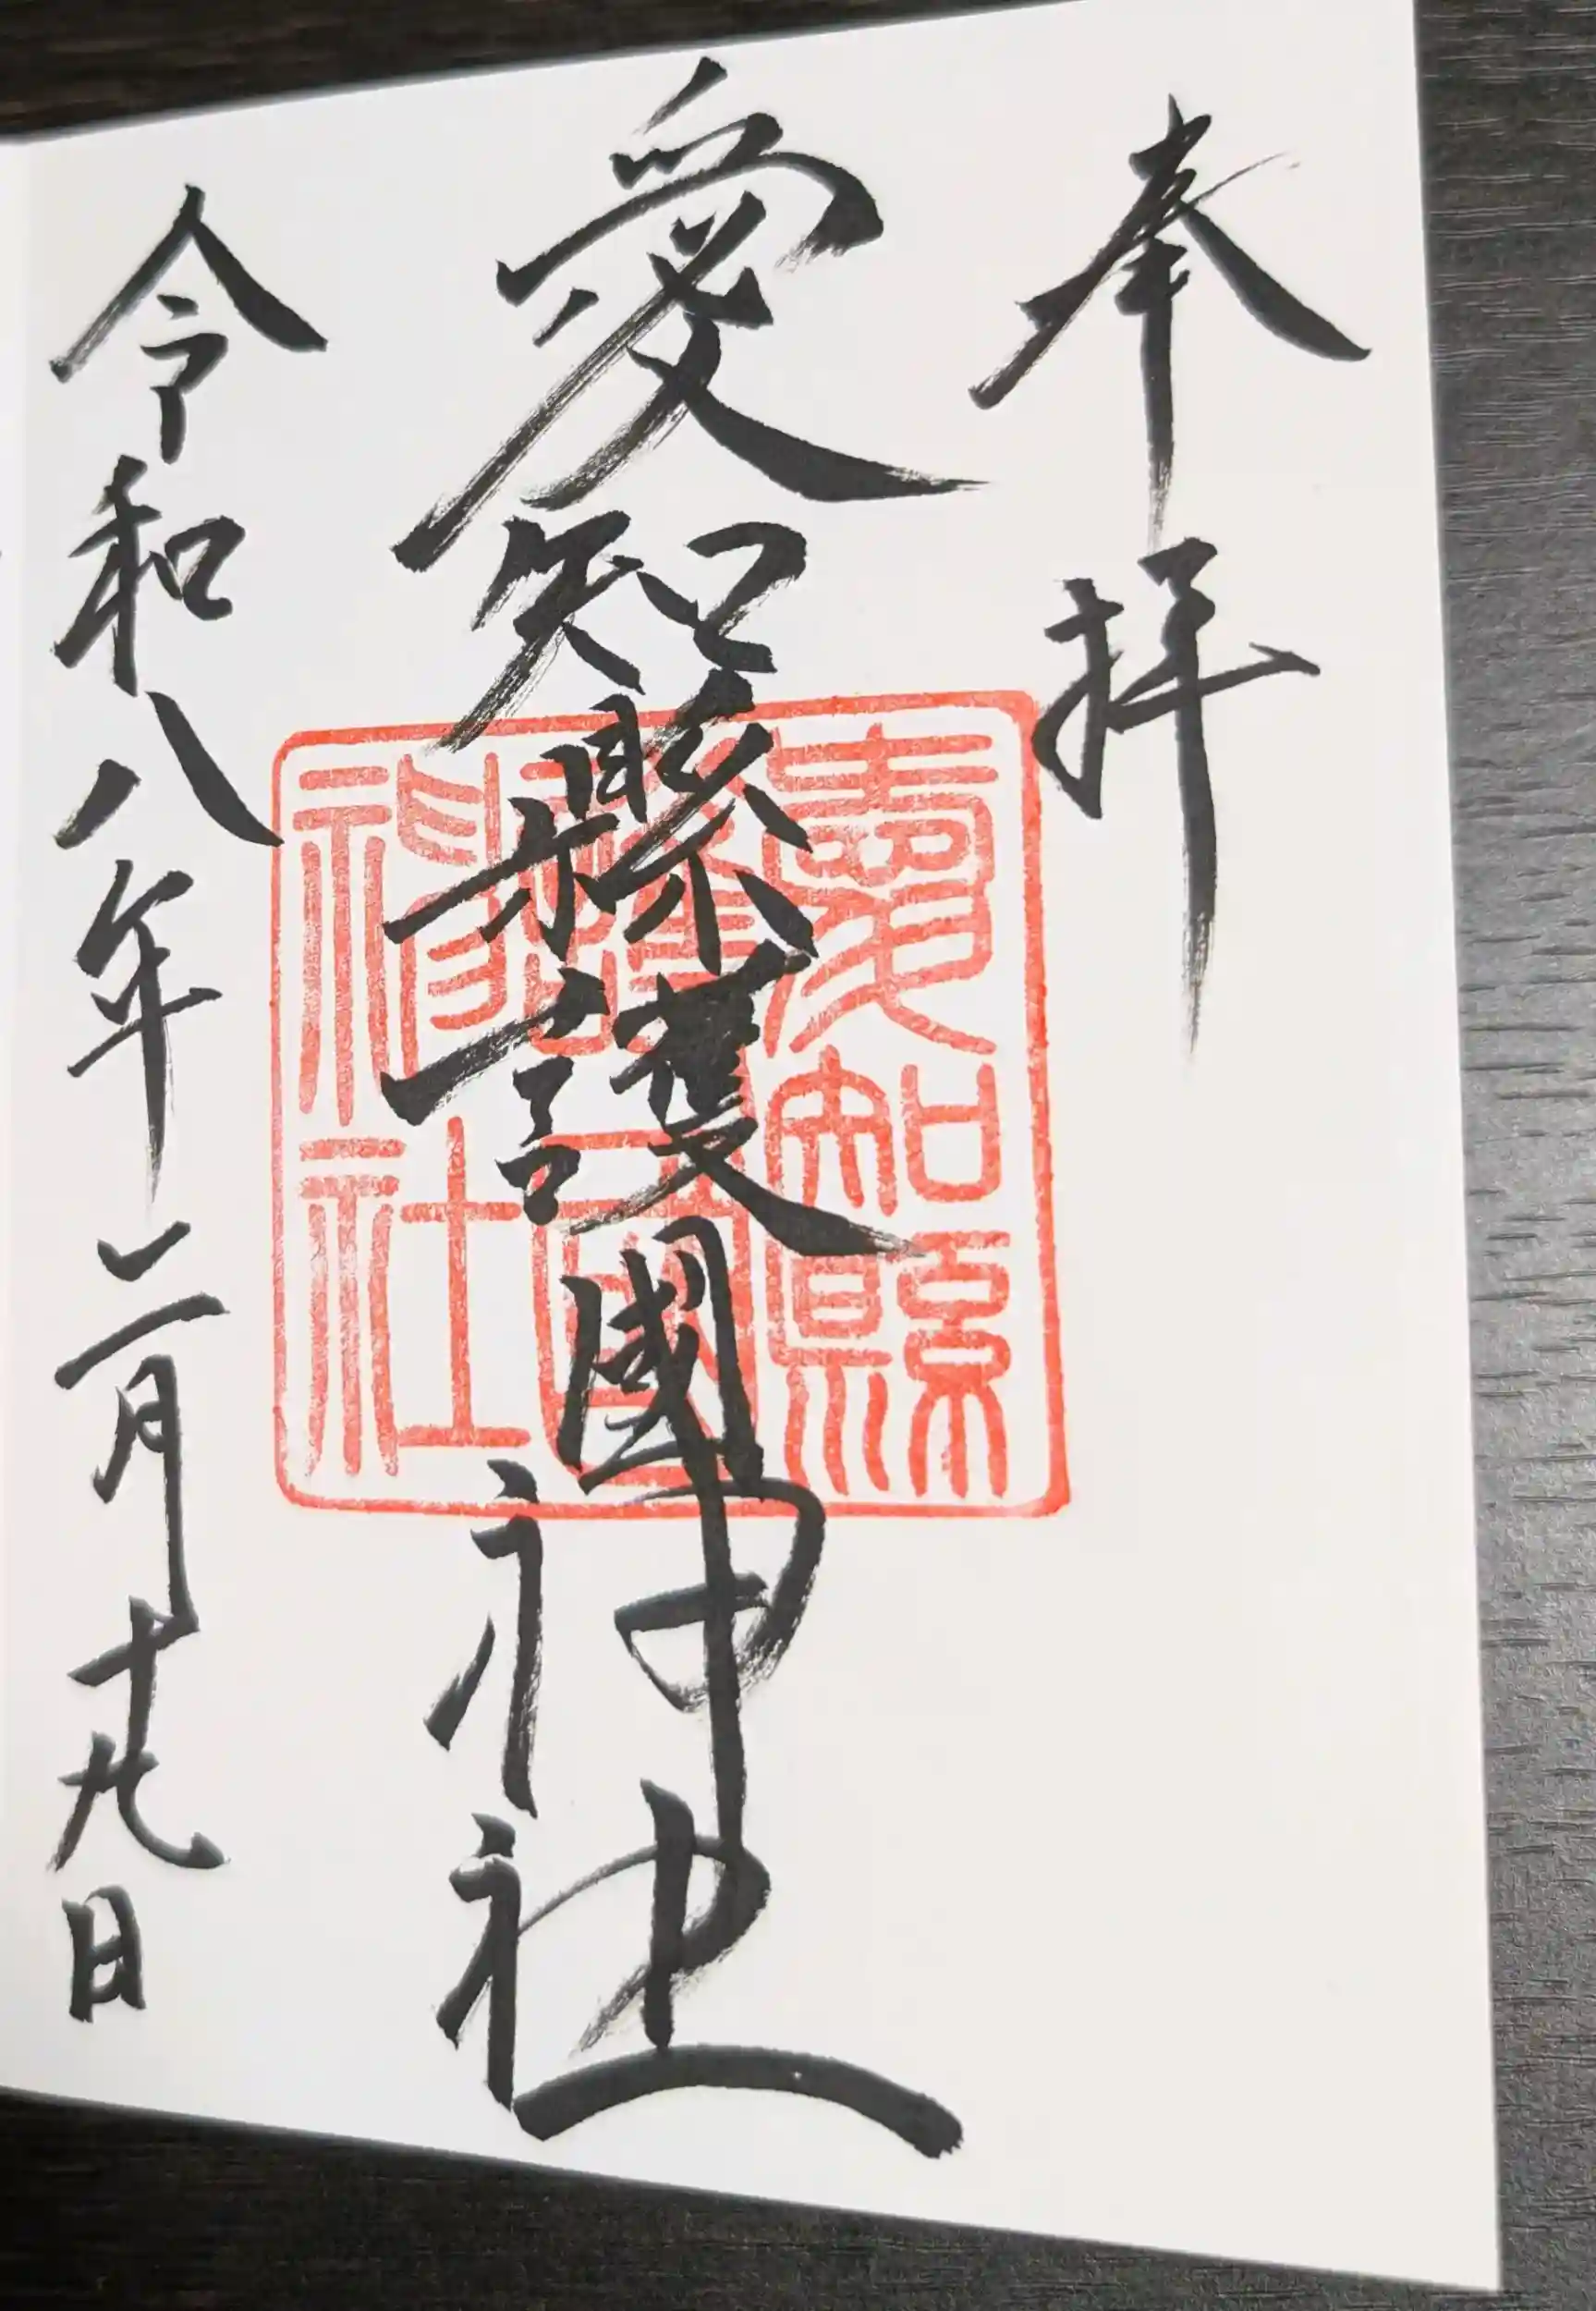 奉拝
愛知縣護國神社
愛知縣
護國
神社
令和八年二月十九日